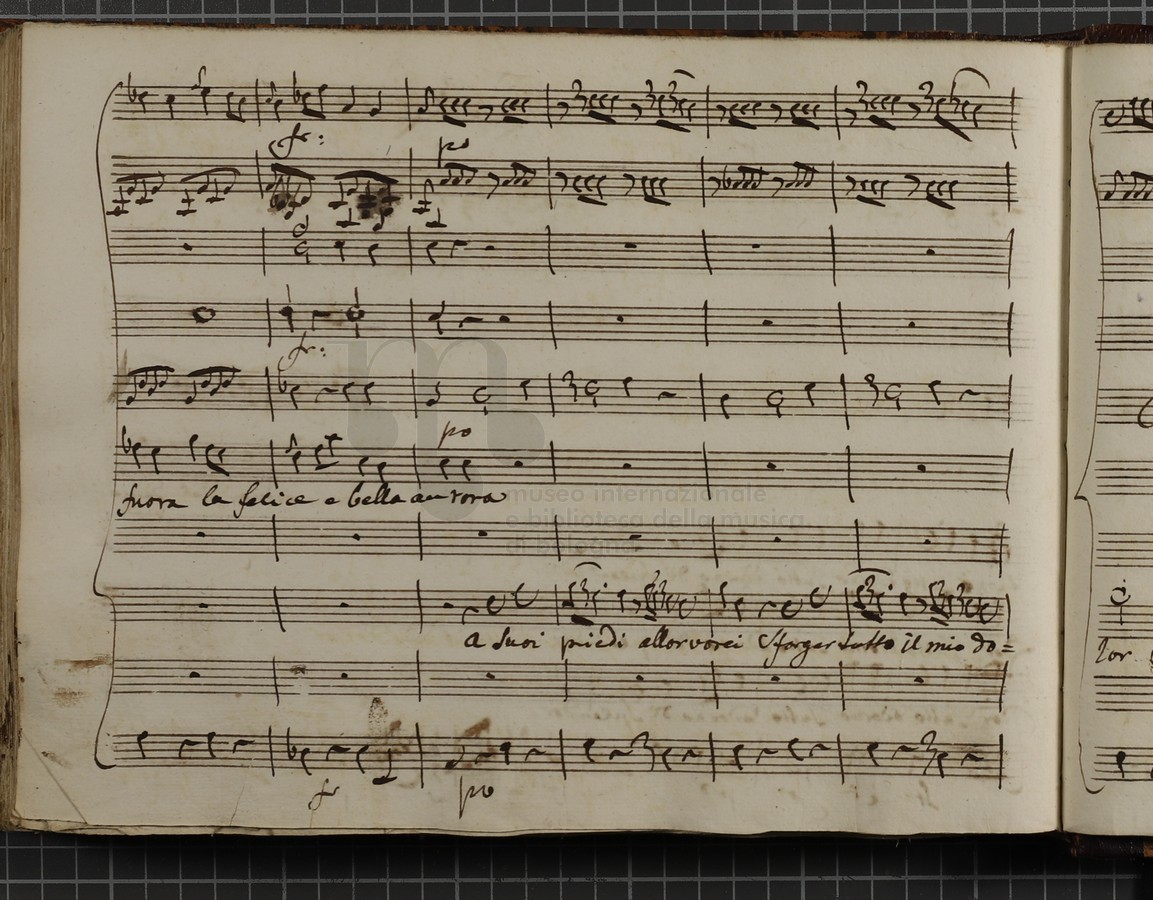 fr:
po
fr:
po
fuora la felice e bella aurora
museo internazionale
e biblioteca della musica
di bologna
a suoi piedi allor vorei sforgar tutto il mio do=
lor
fr
po